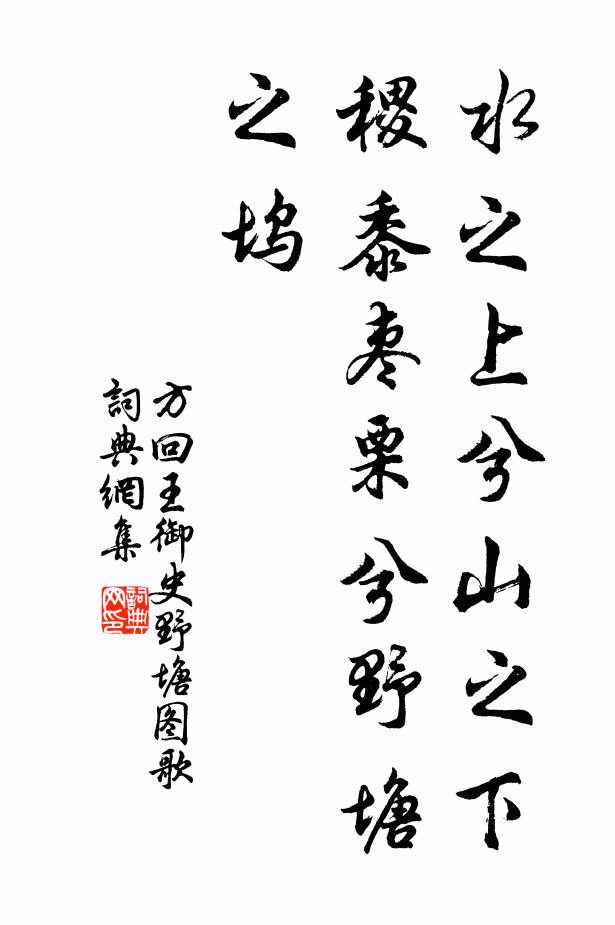 水之上兮山之下
稷黍枣栗兮野塘
之坞
方回王御史野塘图歌
詞典網集
詞典
网印